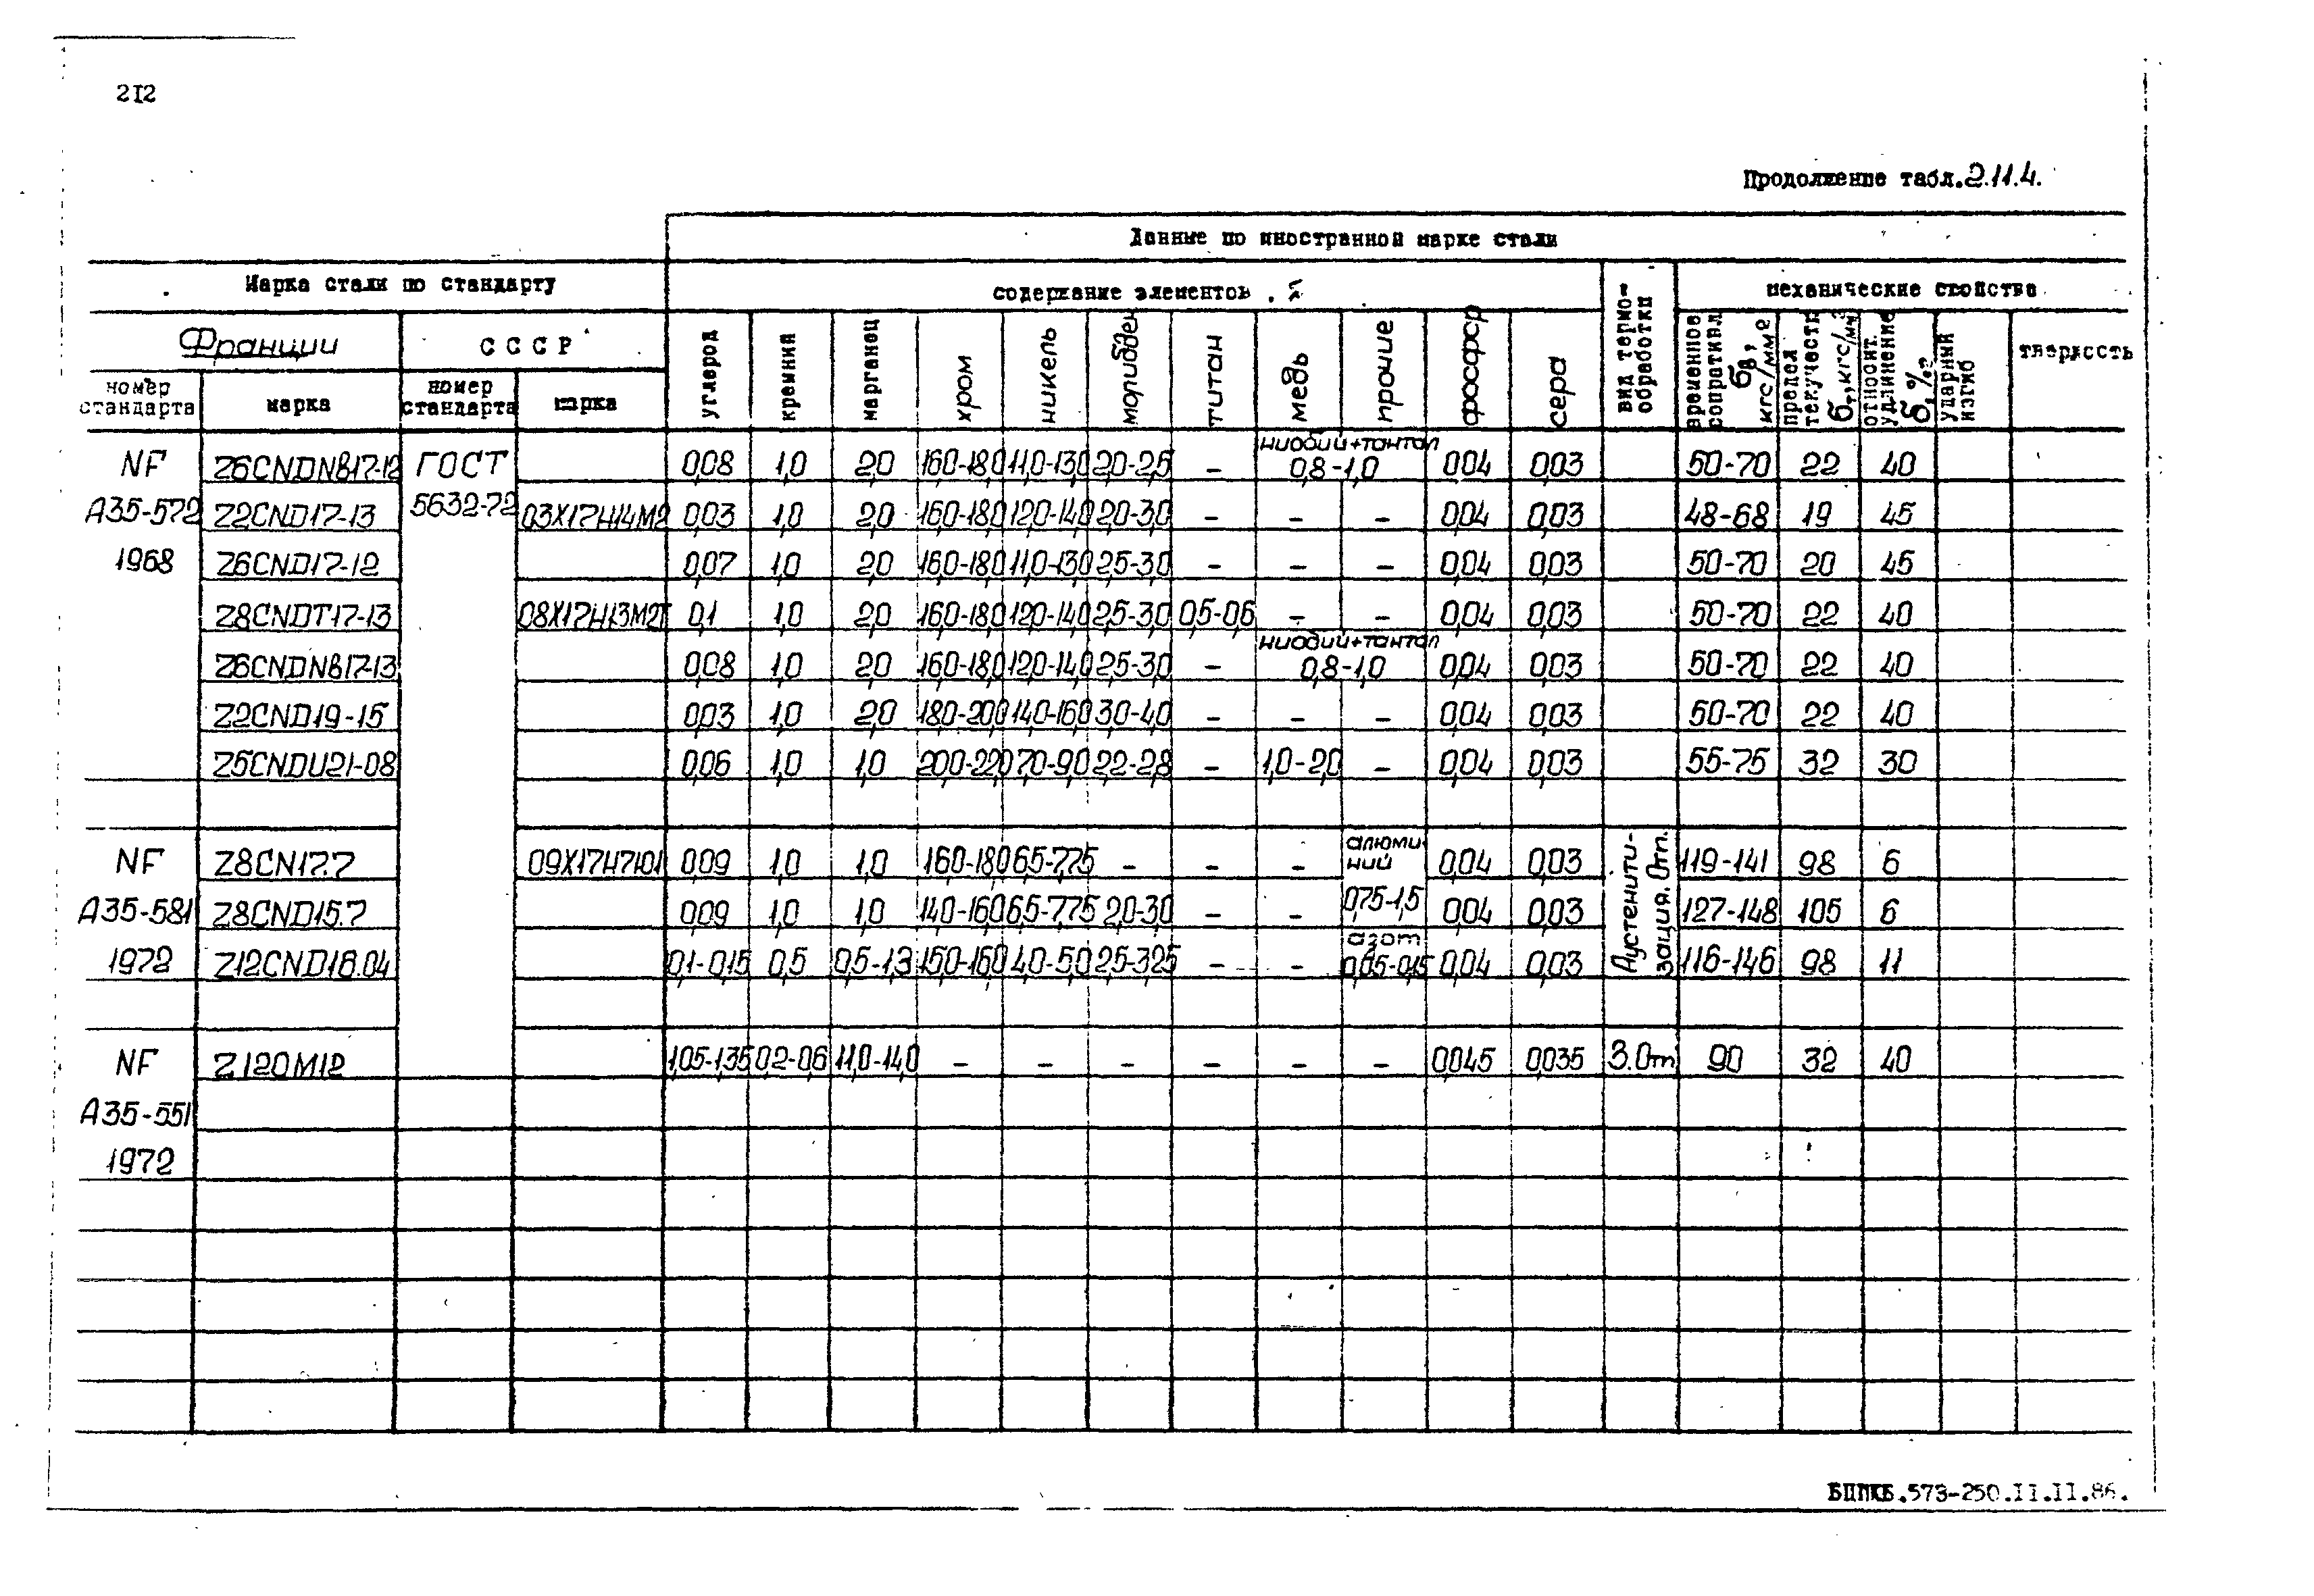 212
Продолжение табл. 2.11.4.
Данные по иностранной марке стали
Марка стали по стандарту
содержание элементов, %
вид термо-
обработки
механические свойства
Франции
СССР
номер
стандарта
марка
номер
стандарта
марка
углерод
кремний
марганец
хром
никель
молибден
титан
медь
прочие
фосфор
сера
временное
сопротивл.
σв,
кгс/мм2
предел
текучести
σт, кгс/мм2
относит.
удлинение
σ, %
ударный
изгиб
твердость
NF Z6CNDNB17-12 ГОСТ 0,08 1,0 2,0 16,0-18,0 11,0-13,0 2,0-2,5 – ниобий+тантал 0,8-1,0 0,04 0,03 50-70 22 40
А35-572 Z2CND17-13 5632-72 03Х17Н14М2 0,03 1,0 2,0 16,0-18,0 12,0-14,0 2,0-3,0 – – – 0,04 0,03 48-68 19 45
1968 Z6CND17-12 0,07 1,0 2,0 16,0-18,0 11,0-13,0 2,5-3,0 – – – 0,04 0,03 50-70 20 45
Z8CNDT17-13 08Х17Н13М2Т 0,1 1,0 2,0 16,0-18,0 12,0-14,0 2,5-3,0 0,5-0,6 – – 0,04 0,03 50-70 22 40
Z6CNDNB17-13 0,08 1,0 2,0 16,0-18,0 12,0-14,0 2,5-3,0 – ниобий+тантал 0,8-1,0 0,04 0,03 50-70 22 40
Z2CND19-15 0,03 1,0 2,0 18,0-20,0 14,0-16,0 3,0-4,0 – – – 0,04 0,03 50-70 22 40
Z5CNDU21-08 0,06 1,0 1,0 20,0-22,0 7,0-9,0 2,2-2,8 – 1,0-2,0 – 0,04 0,03 55-75 32 30
NF Z8CN17.7 09Х17Н7Ю1 0,09 1,0 1,0 16,0-18,0 6,5-7,75 – – – алюми-
ний 0,04 0,03 Аустенити-
зация. От. 119-141 98 6
А35-581 Z8CND15.7 0,09 1,0 1,0 14,0-16,0 6,5-7,75 2,0-3,0 – – 0,75-1,5 0,04 0,03 127-148 105 6
1972 Z12CND16.04 0,1-0,15 0,5 0,5-1,3 15,0-16,0 4,0-5,0 2,5-3,25 – – азот 0,05-0,15 0,04 0,03 116-146 98 11
NF Z120M12 1,05-1,35 0,2-0,6 11,0-14,0 – – – – – – 0,045 0,035 З.От 90 32 40
А35-551
1972
БППКБ.573-250.II.II.86.